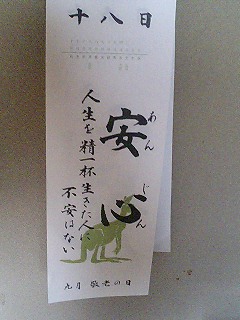 十八日
安心
あんじん
人生を精一杯生きた人に
不安はない
九月 敬老の日